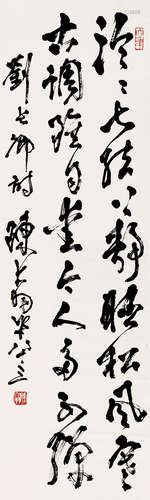 泠〻七絃上静聽松風寒
古調雖自愛今人多不彈
劉長卿詩 陳大羽